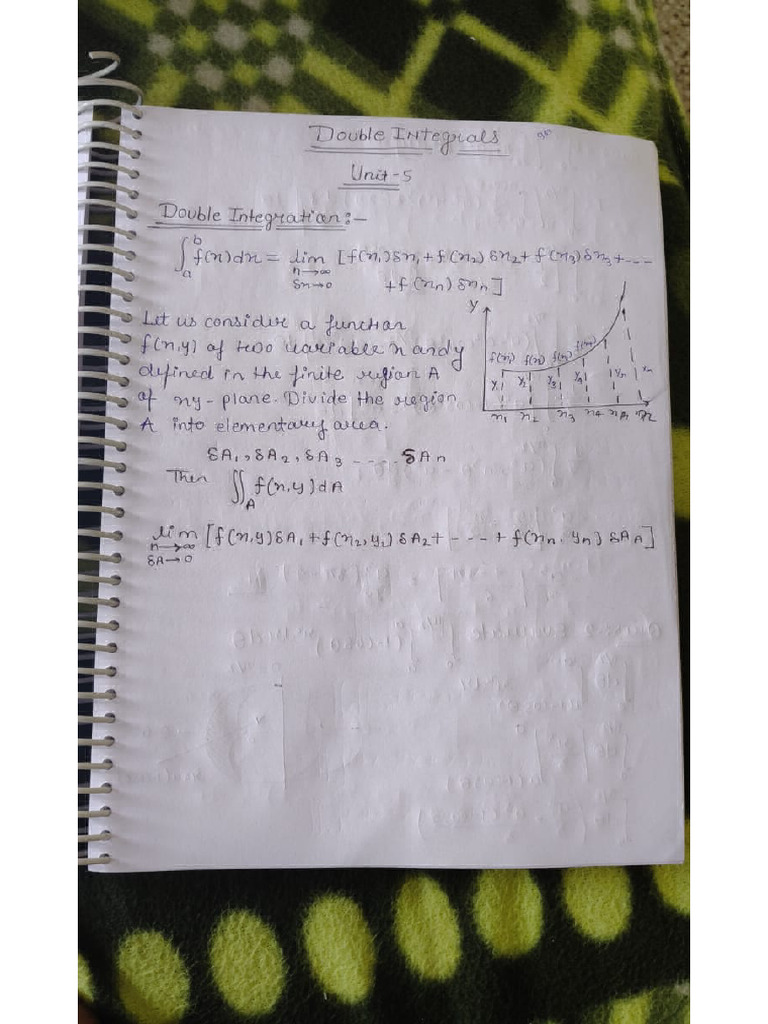 Double Integrals
Unit-5
Double Integration:-
∫_a^b f(x)dx = lim_{n→∞, δx→0} [f(x₁)δx₁+f(x₂)δx₂+f(x₃)δx₃+----
+f(xₙ)δxₙ]
Let us consider a function
f(x,y) of two variable x and y
defined in the finite region A
of xy-plane. Divide the region
A into elementary area.
y
f(x₁) f(x₂) f(x₃)
y₁ y₂ y₃ y₄ yₙ
x₁ x₂ x₃ x₄
δA₁, δA₂, δA₃ ----- δAn
Then ∬_A f(x,y)dA
lim_{n→∞, δA→0} [f(x,y)δA₁+f(x₂,y₁)δA₂+----+f(xₙ,yₙ)δAn]